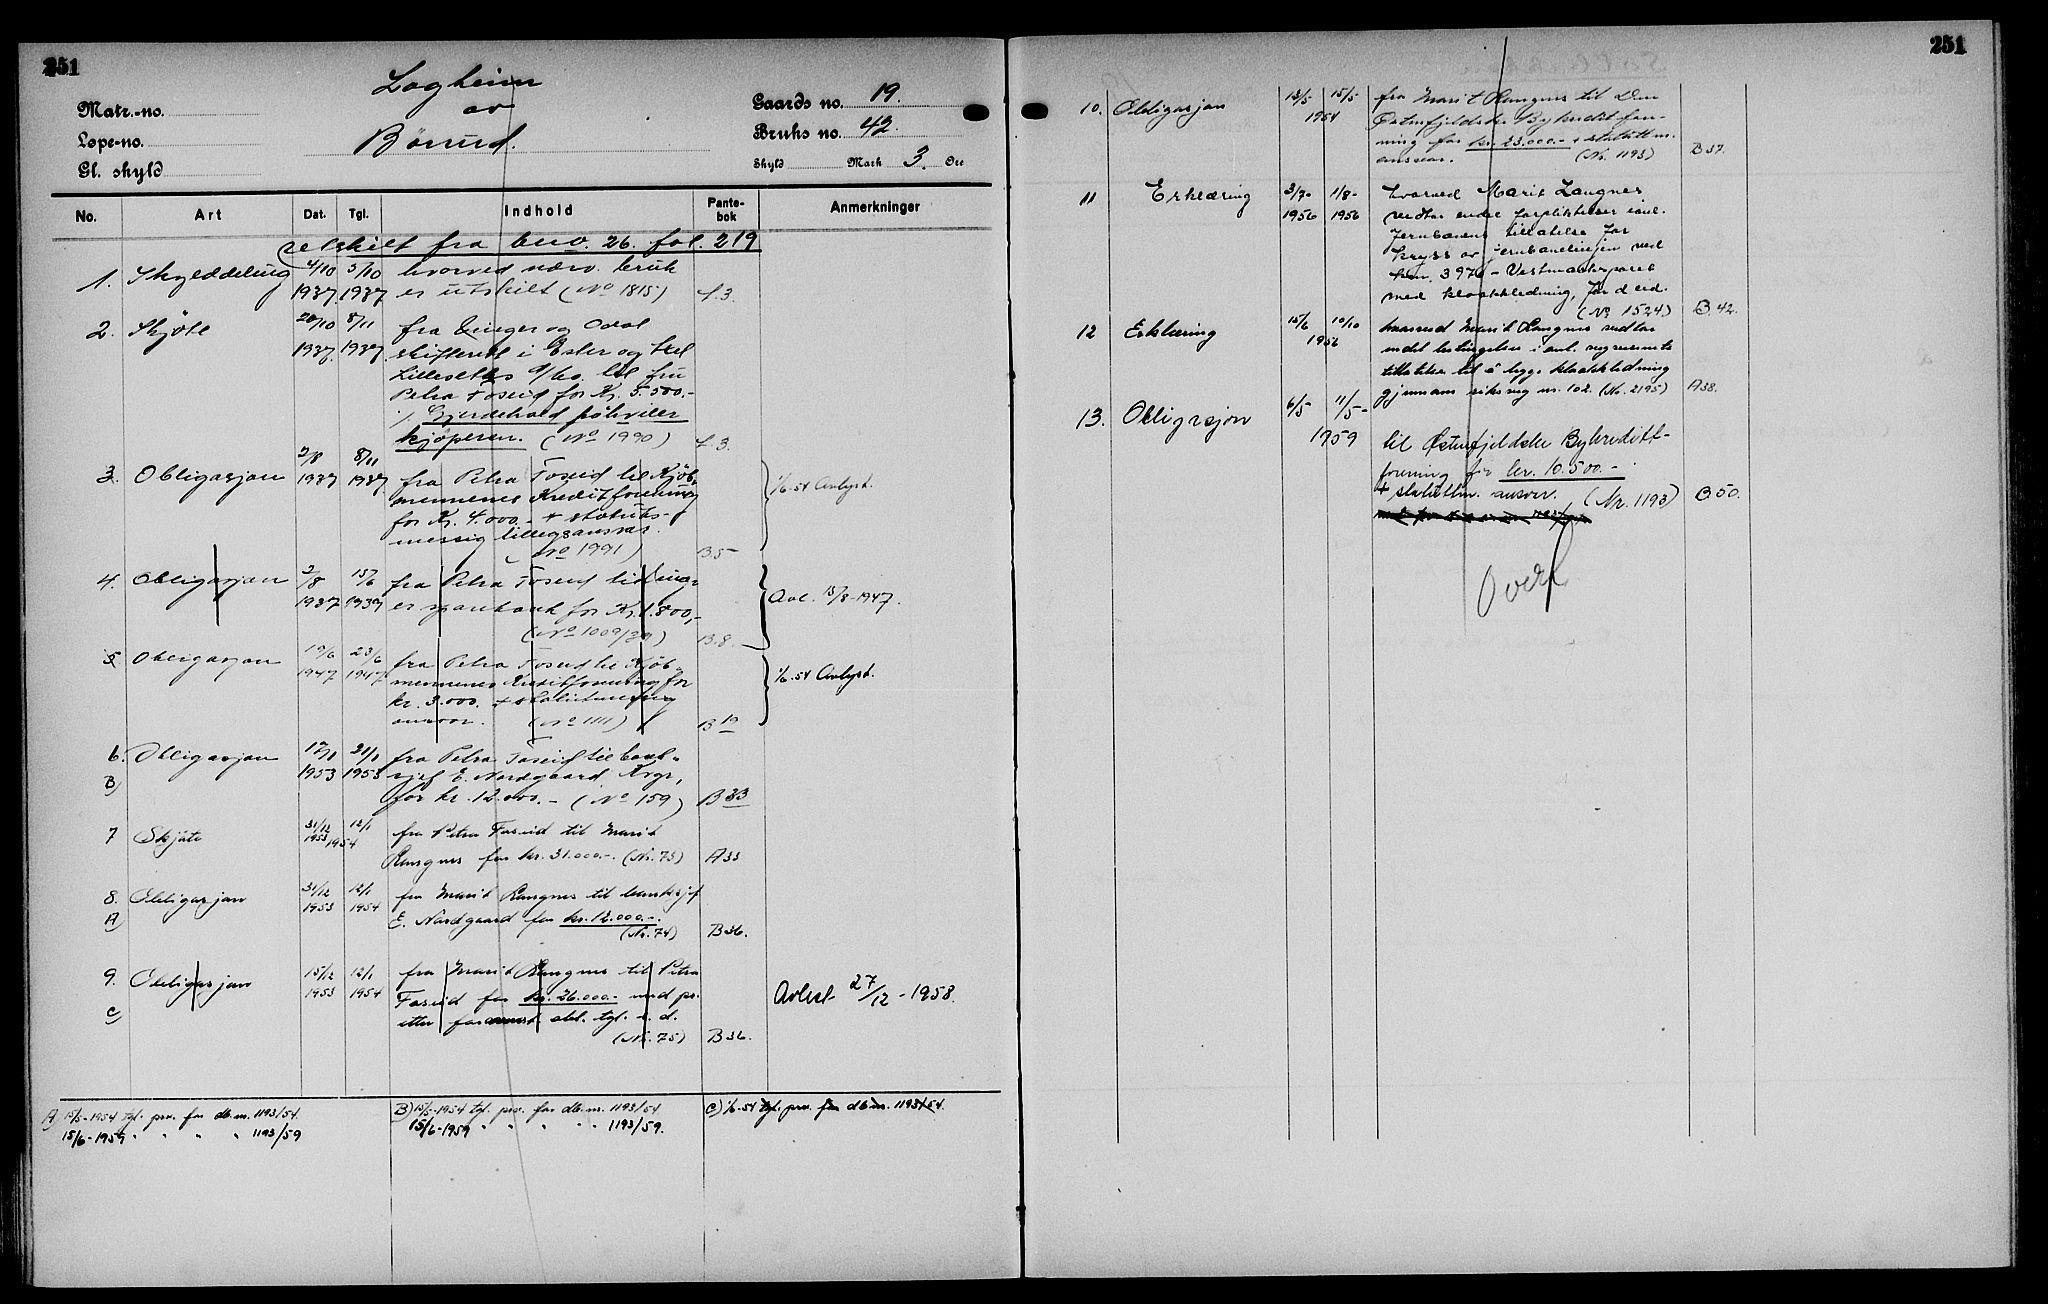 251
Matr.-no.
Løpe-no.
Gl. skyld
Lagheim
av
Børud.
Gaards no. 19.
Bruks no. 42.
Skyld Mark 3. Øre
No. Art Dat. Tgl. Indhold Pante-bok Anmerkninger
utskilt fra bno. 26. fol. 219
1. Skylddeling 4/10 5/10 hvorved nærv. bruk
1937. 1937 er utskilt (No 1815) A.3.
2. Skjøte 20/10 8/11 fra Vinger og Odal
1937. 1937. skifterett i Ester og Karl
Lillesæters d/bo. til fru
Petra Foseid for Kr. 5.500.-
./. Gjerdehold påhviler
kjøperen. (No 1990) A.3.
3. Obligasjon 2/8 8/11
1937 1937 fra Petra Foseid til Kjøb-
mennenes Kreditforening
for Kr. 4.000.- + statutts-
messig tilleggsansvar.
(No 1991) B.5
1/6-54 Avlyst.
4. Obligasjon 2/8 15/6 fra Petra Foseid til Ving-
1937 1939 er sparebank for Kr. 1.800,-
(No 1009/39) B.8.
Avl. 15/8-1947.
5 Obligasjon 19/6 23/6 fra Petra Foseid til Kjøb-
1947 1947 mennenes Kreditforening for
kr. 3.000. + statuttmessig
ansvar. (No 1111) B 19
1/6-54 Avlyst.
6. Obligasjon 17/1 21/1 fra Petra Foseid til bank-
B) 1953 1953 sjef E. Nordgaard Kvgr,
for kr. 12.000.- (No 159) B 33
7 Skjøte 31/12 12/1 fra Petra Foseid til Marit
1953 1954
Langnes for kr. 31.000.-. (Nr. 73) A 33
8. Obligasjon 31/12 12/1 fra Marit Langnes til banksjef
A) 1953 1954 E. Nordgaard for kr. 12.000.-.
(Nr. 74) B 36.
9. Obligasjon 15/12 12/1 fra Marit Langnes til Petra
1953 1954 Foseid for kr. 26.000.- med pr.
C) etter obl. tgl. s. d.
(Nr. 75) B 36.
Avlest 27/12-1958.
A) 15/5-1954 tgl. prv. for db.nr. 1193/54.
15/6-1959 " " " " 1193/59
B) 15/5-1954 tgl. prv. for db.nr. 1193/54
15/6-1959 " " " " 1193/59.
C) 1/6-54 tgl. prv. for db.nr. 1193/54.
251
10. Obligasjon 13/5 15/5 fra Marit Langnes til Den
1954 Østenfjeldske Bykreditfore-
ning for kr. 23.000.- + statuttm.
ansvar. (Nr. 1193) B 37.
11 Erklæring 3/7- 11/8- hvorved Marit Langnes
1956 1956 vedtar endre forpliktelser i anl.
Jernbanens tillatelse for
kryss av jernbanelinjen ved
med kloakkledning, for d eid.
(Nr 1524) B.42.
12 Erklæring 15/6 10/10 hvorved Marit Langnes vedtar
1956 endel betingelser i anl. vegvesenets
tillatelse til å legge kloakkledning
gjennom riksveg nr. 102. (No. 2195) A38.
13. Obligasjon 6/5 11/5-
1959 til Østenfjeldske Bykreditt-
forening for kr. 10.500.-
+ statuttm. ansvar. (Nr. 1193) B 50.
Overf